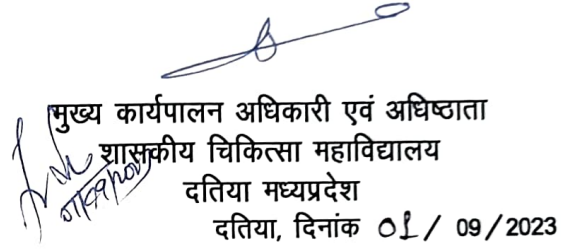 मुख्य कार्यपालन अधिकारी एवं अधिष्ठाता
शासकीय चिकित्सा महाविद्यालय
दतिया मध्यप्रदेश
दतिया, दिनांक 01/ 09/2023